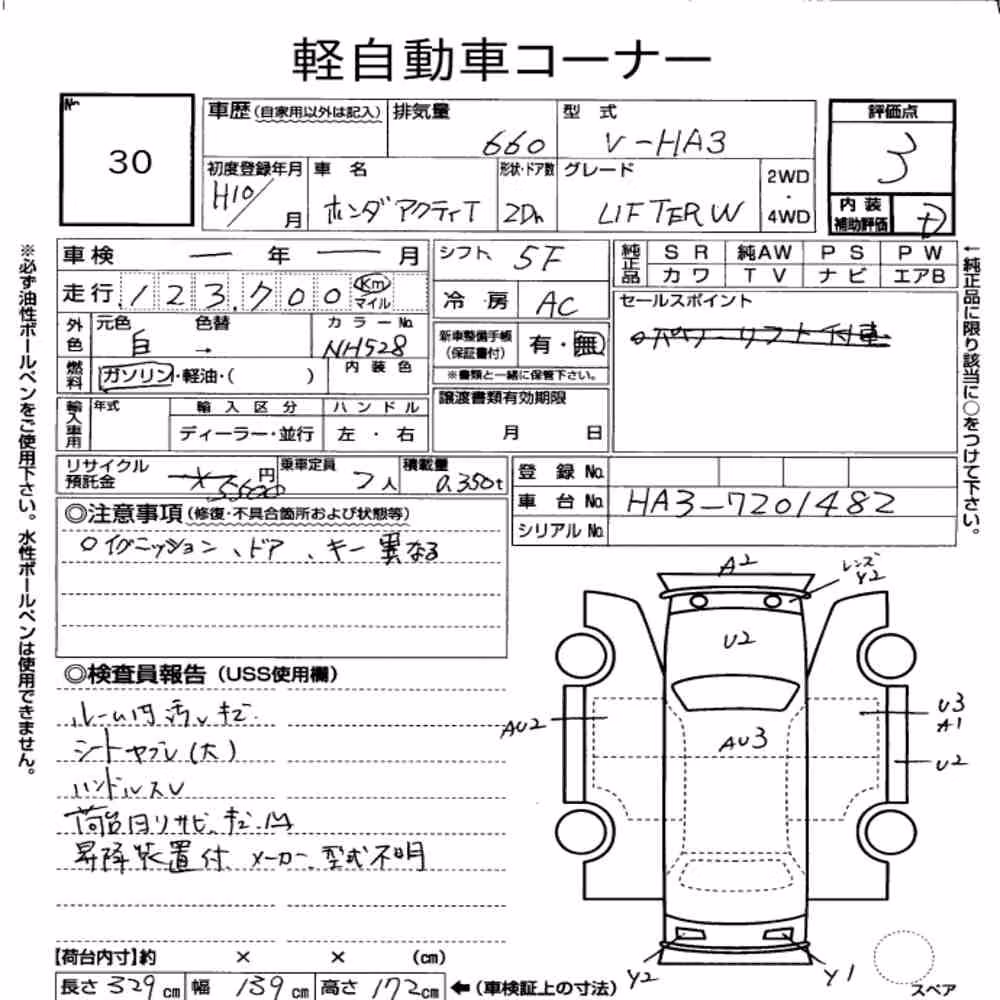 軽自動車コーナー
No.
30
車歴(自家用以外は記入)
排気量 660
型式 V-HA3
評価点 3
初度登録年月 H10/ 月
車名 ホンダ アクティT
形状・ドア数 2Dr
グレード LIFTER W
2WD・4WD
内装補助評価 D
※必ず油性ボールペンをご使用下さい。水性ボールペンは使用できません。
車検 — 年 — 月
走行 123,700 Km マイル
外色 元色 白 色替 → カラーNo. NH528
燃料 ガソリン・軽油・( ) 内装色
輸入車用 年式 輸入区分 ハンドル
ディーラー・並行 左・右
シフト 5F
冷房 AC
新車整備手帳(保証書付) 有・無
※書類と一緒に保管下さい。
譲渡書類有効期限
月 日
純正品 SR 純AW PS PW
カワ TV ナビ エアB
セールスポイント
パワーリフト付車
←純正品に限り該当に○をつけて下さい。
リサイクル預託金 5,600 円
乗車定員 2人
積載量 0.350t
登録No.
車台No. HA3-7201482
シリアルNo.
◎注意事項(修復・不具合箇所および状態等)
○イグニッション、ドア、キー異なる
◎検査員報告(USS使用欄)
ルーム内汚レ キズ
シートヤブレ(大)
ハンドルスレ
荷台内サビ、キズ、凹
昇降装置付 メーカー、型式不明
A2
レンズ Y2
U2
AU2
AU3
U3
A1
U2
Y2
Y1
スペア
【荷台内寸】約 × × (cm)
長さ 329cm 幅 139cm 高さ 172cm ←(車検証上の寸法)